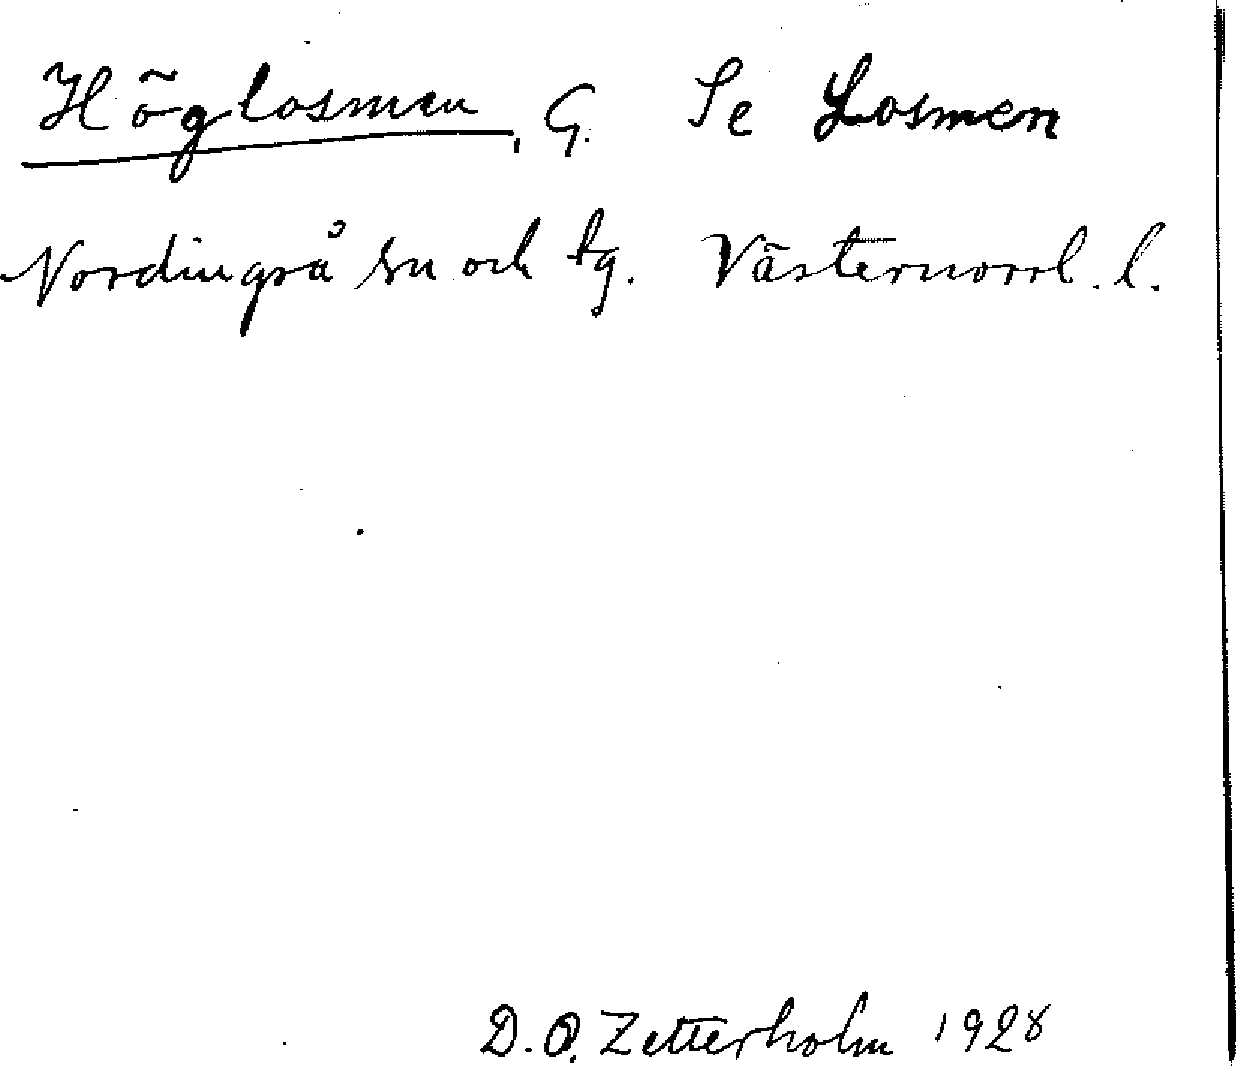 Höglosmen, G. Se Losmen
Nordingrå sn och tg. Västernorrl. l.
D.O. Zetterholm 1928